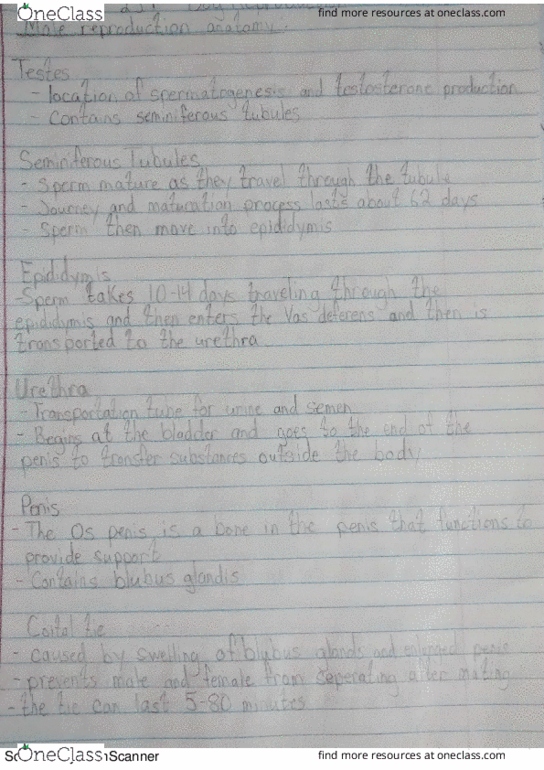 OneClass
find more resources at oneclass.com
Male reproduction anatomy:
Testes
- location of spermatogenesis and testosterone production
- Contains seminiferous tubules
Seminiferous Tubules
- Sperm mature as they travel through the tubule
- Journey and maturation process lasts about 62 days
- Sperm then move into epididymis
Epididymis
- Sperm takes 10-14 days traveling through the
epididymis and then enters the Vas deferens and then is
transported to the urethra
Urethra
- Transportation tube for urine and semen
- Begins at the bladder and goes to the end of the
penis to transfer substances outside the body
Penis
- The Os penis is a bone in the penis that functions to
provide support
- Contains blubus glandis
Coital tie
- caused by swelling of blubus glands and enlarged penis
- prevents male and female from seperating after mating
- the tie can last 5-80 minutes
OneClass
Scanner
find more resources at oneclass.com